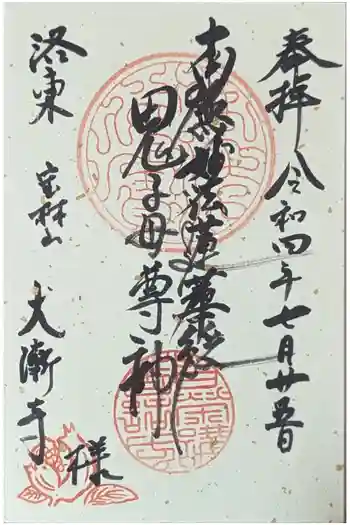 奉拝 令和四年七月廿日
南無妙法蓮華経
鬼子母尊神
洛東 宝林山 大漸寺
様